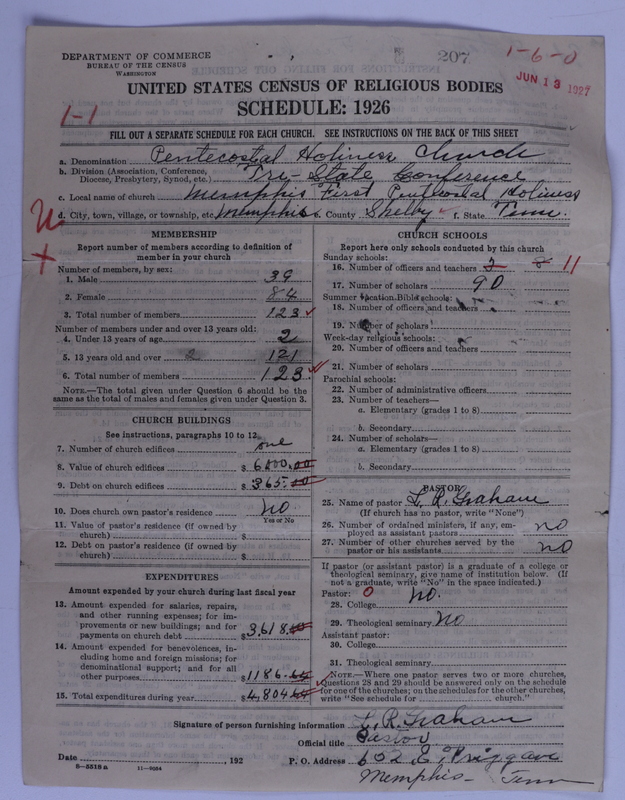 207
1-6-0
DEPARTMENT OF COMMERCE
BUREAU OF THE CENSUS
WASHINGTON
JUN 13 1927
UNITED STATES CENSUS OF RELIGIOUS BODIES
SCHEDULE: 1926
1-1
FILL OUT A SEPARATE SCHEDULE FOR EACH CHURCH. SEE INSTRUCTIONS ON THE BACK OF THIS SHEET
a. Denomination Pentecostal Holiness Church
b. Division (Association, Conference, Diocese, Presbytery, Synod, etc.) Tri-State Conference
c. Local name of church Memphis First Pentecostal Holiness
d. City, town, village, or township, etc. Memphis e. County Shelby f. State Tenn.
MEMBERSHIP
Report number of members according to definition of
member in your church
Number of members, by sex:
1. Male 39
2. Female 84
3. Total number of members 123
Number of members under and over 13 years old:
4. Under 13 years of age 2
5. 13 years old and over 2 121
6. Total number of members 123
NOTE.—The total given under Question 6 should be
same as the total of males and females given under Question 3.
CHURCH BUILDINGS
See instructions, paragraphs 10 to 12
7. Number of church edifices one
8. Value of church edifices $ 6000.00
9. Debt on church edifices $ 365.00
10. Does church own pastor's residence no
Yes or No
11. Value of pastor's residence (if owned by
church) $
12. Debt on pastor's residence (if owned by
church) $
EXPENDITURES
Amount expended by your church during last fiscal year
13. Amount expended for salaries, repairs,
and other running expenses; for im-
provements or new buildings; and for
payments on church debt $ 3,618.00
14. Amount expended for benevolences, in-
cluding home and foreign missions; for
denominational support; and for all
other purposes $ 1186.64
15. Total expenditures during year $ 4,804.64
CHURCH SCHOOLS
Report here only schools conducted by this church
Sunday schools:
16. Number of officers and teachers 11
17. Number of scholars 90
Summer vacation Bible schools:
18. Number of officers and teachers
19. Number of scholars
Week-day religious schools:
20. Number of officers and teachers
21. Number of scholars
Parochial schools:
22. Number of administrative officers
23. Number of teachers—
a. Elementary (grades 1 to 8)
b. Secondary
24. Number of scholars—
a. Elementary (grades 1 to 8)
b. Secondary
PASTOR
25. Name of pastor L. R. Graham
(If church has no pastor, write "None")
26. Number of ordained ministers, if any, em-
ployed as assistant pastors no
27. Number of other churches served by the
pastor or his assistants no
If pastor (or assistant pastor) is a graduate of a college or
theological seminary, give name of institution below. (If
not a graduate, write "No" in the space indicated.)
Pastor: 0
28. College no.
29. Theological seminary no
Assistant pastor:
30. College
31. Theological seminary
NOTE.—Where one pastor serves two or more churches,
Questions 28 and 29 should be answered only on the schedule
for one of the churches; on the schedules for the other churches,
write "See schedule for church."
Signature of person furnishing information L. R. Graham
Official title Pastor
Date , 192 P. O. Address 602 E. Trigg ave
8-5518 a 11-9034
Memphis - Tenn